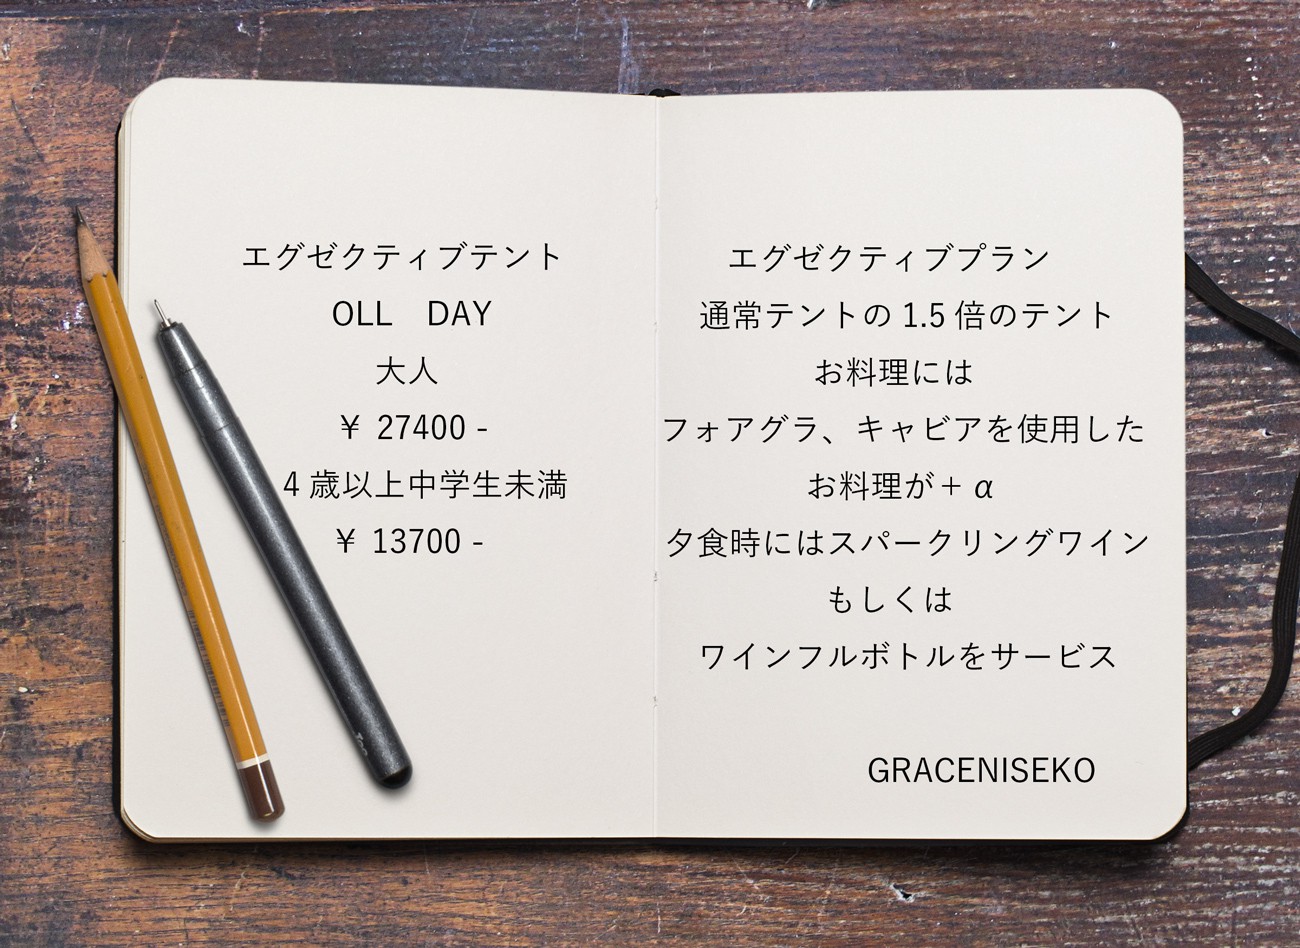 エグゼクティブテント
OLL DAY
大人
¥ 27400 -
4 歳以上中学生未満
¥ 13700 -
エグゼクティブプラン
通常テントの 1.5 倍のテント
お料理には
フォアグラ、キャビアを使用した
お料理が + α
夕食時にはスパークリングワイン
もしくは
ワインフルボトルをサービス
GRACENISEKO